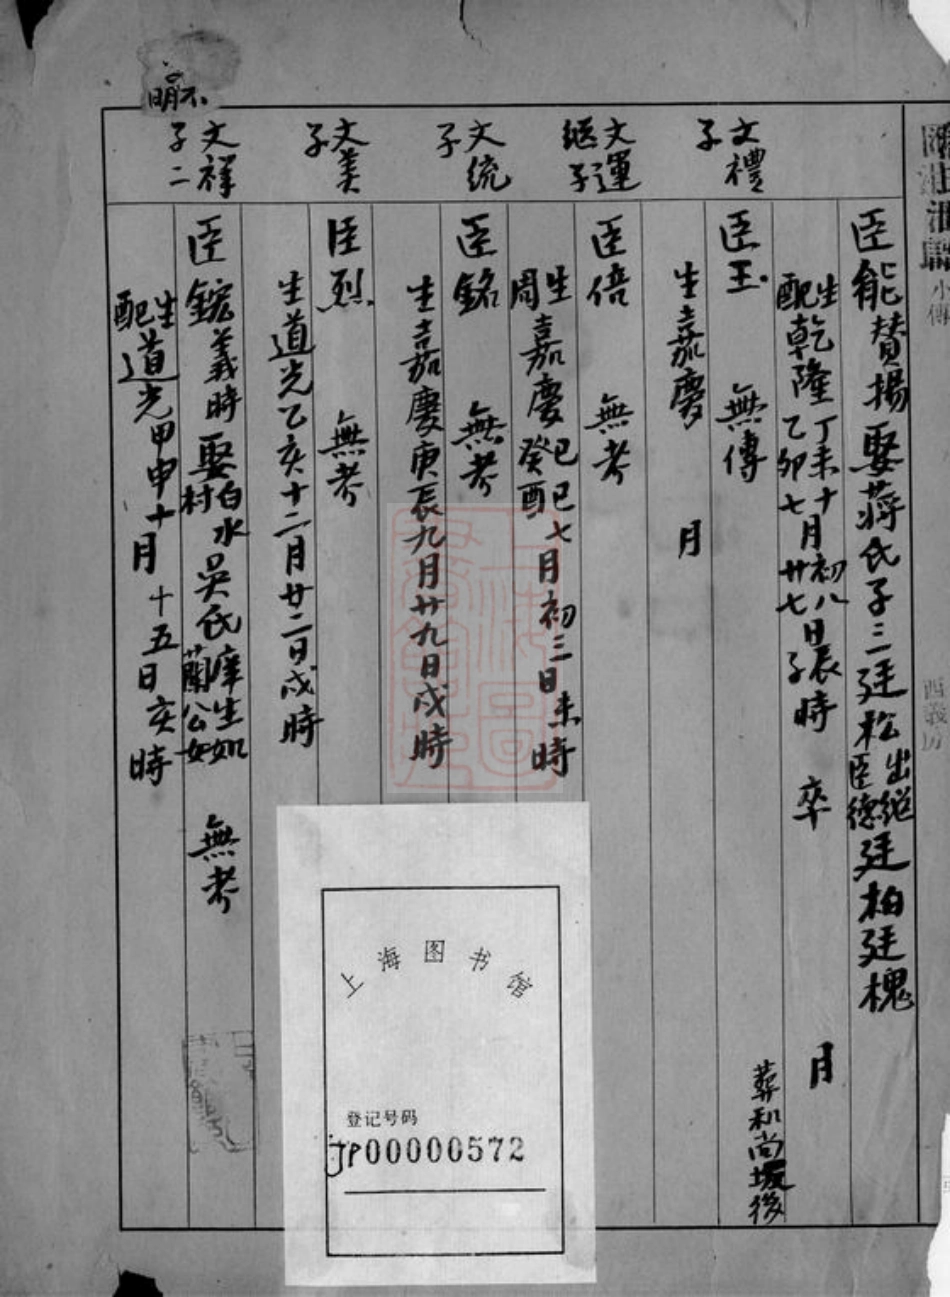 小傳
西義房
文禮子
臣能贊揚娶蔣氏子三廷松出繼臣德廷柏廷槐
生配乾隆丁未十月初八日辰時 卒 月
乙卯七 廿七 子
葬和尚坂後
臣玉 無傳
生嘉慶 月
文運繼子
臣倍 無考
生嘉慶己巳七月初三日未時
周 癸酉
文統子
臣銘 無考
生嘉慶庚辰九月廿九日戌時
文美子
臣烈 無考
生道光乙亥十二月廿二日戌時
文祥子二
臣鋐義時娶白水村吳氏庠生如蘭公女 無考
生配道光甲申十月十五日亥時
不明
上海图书馆
登记号码
JP00000572